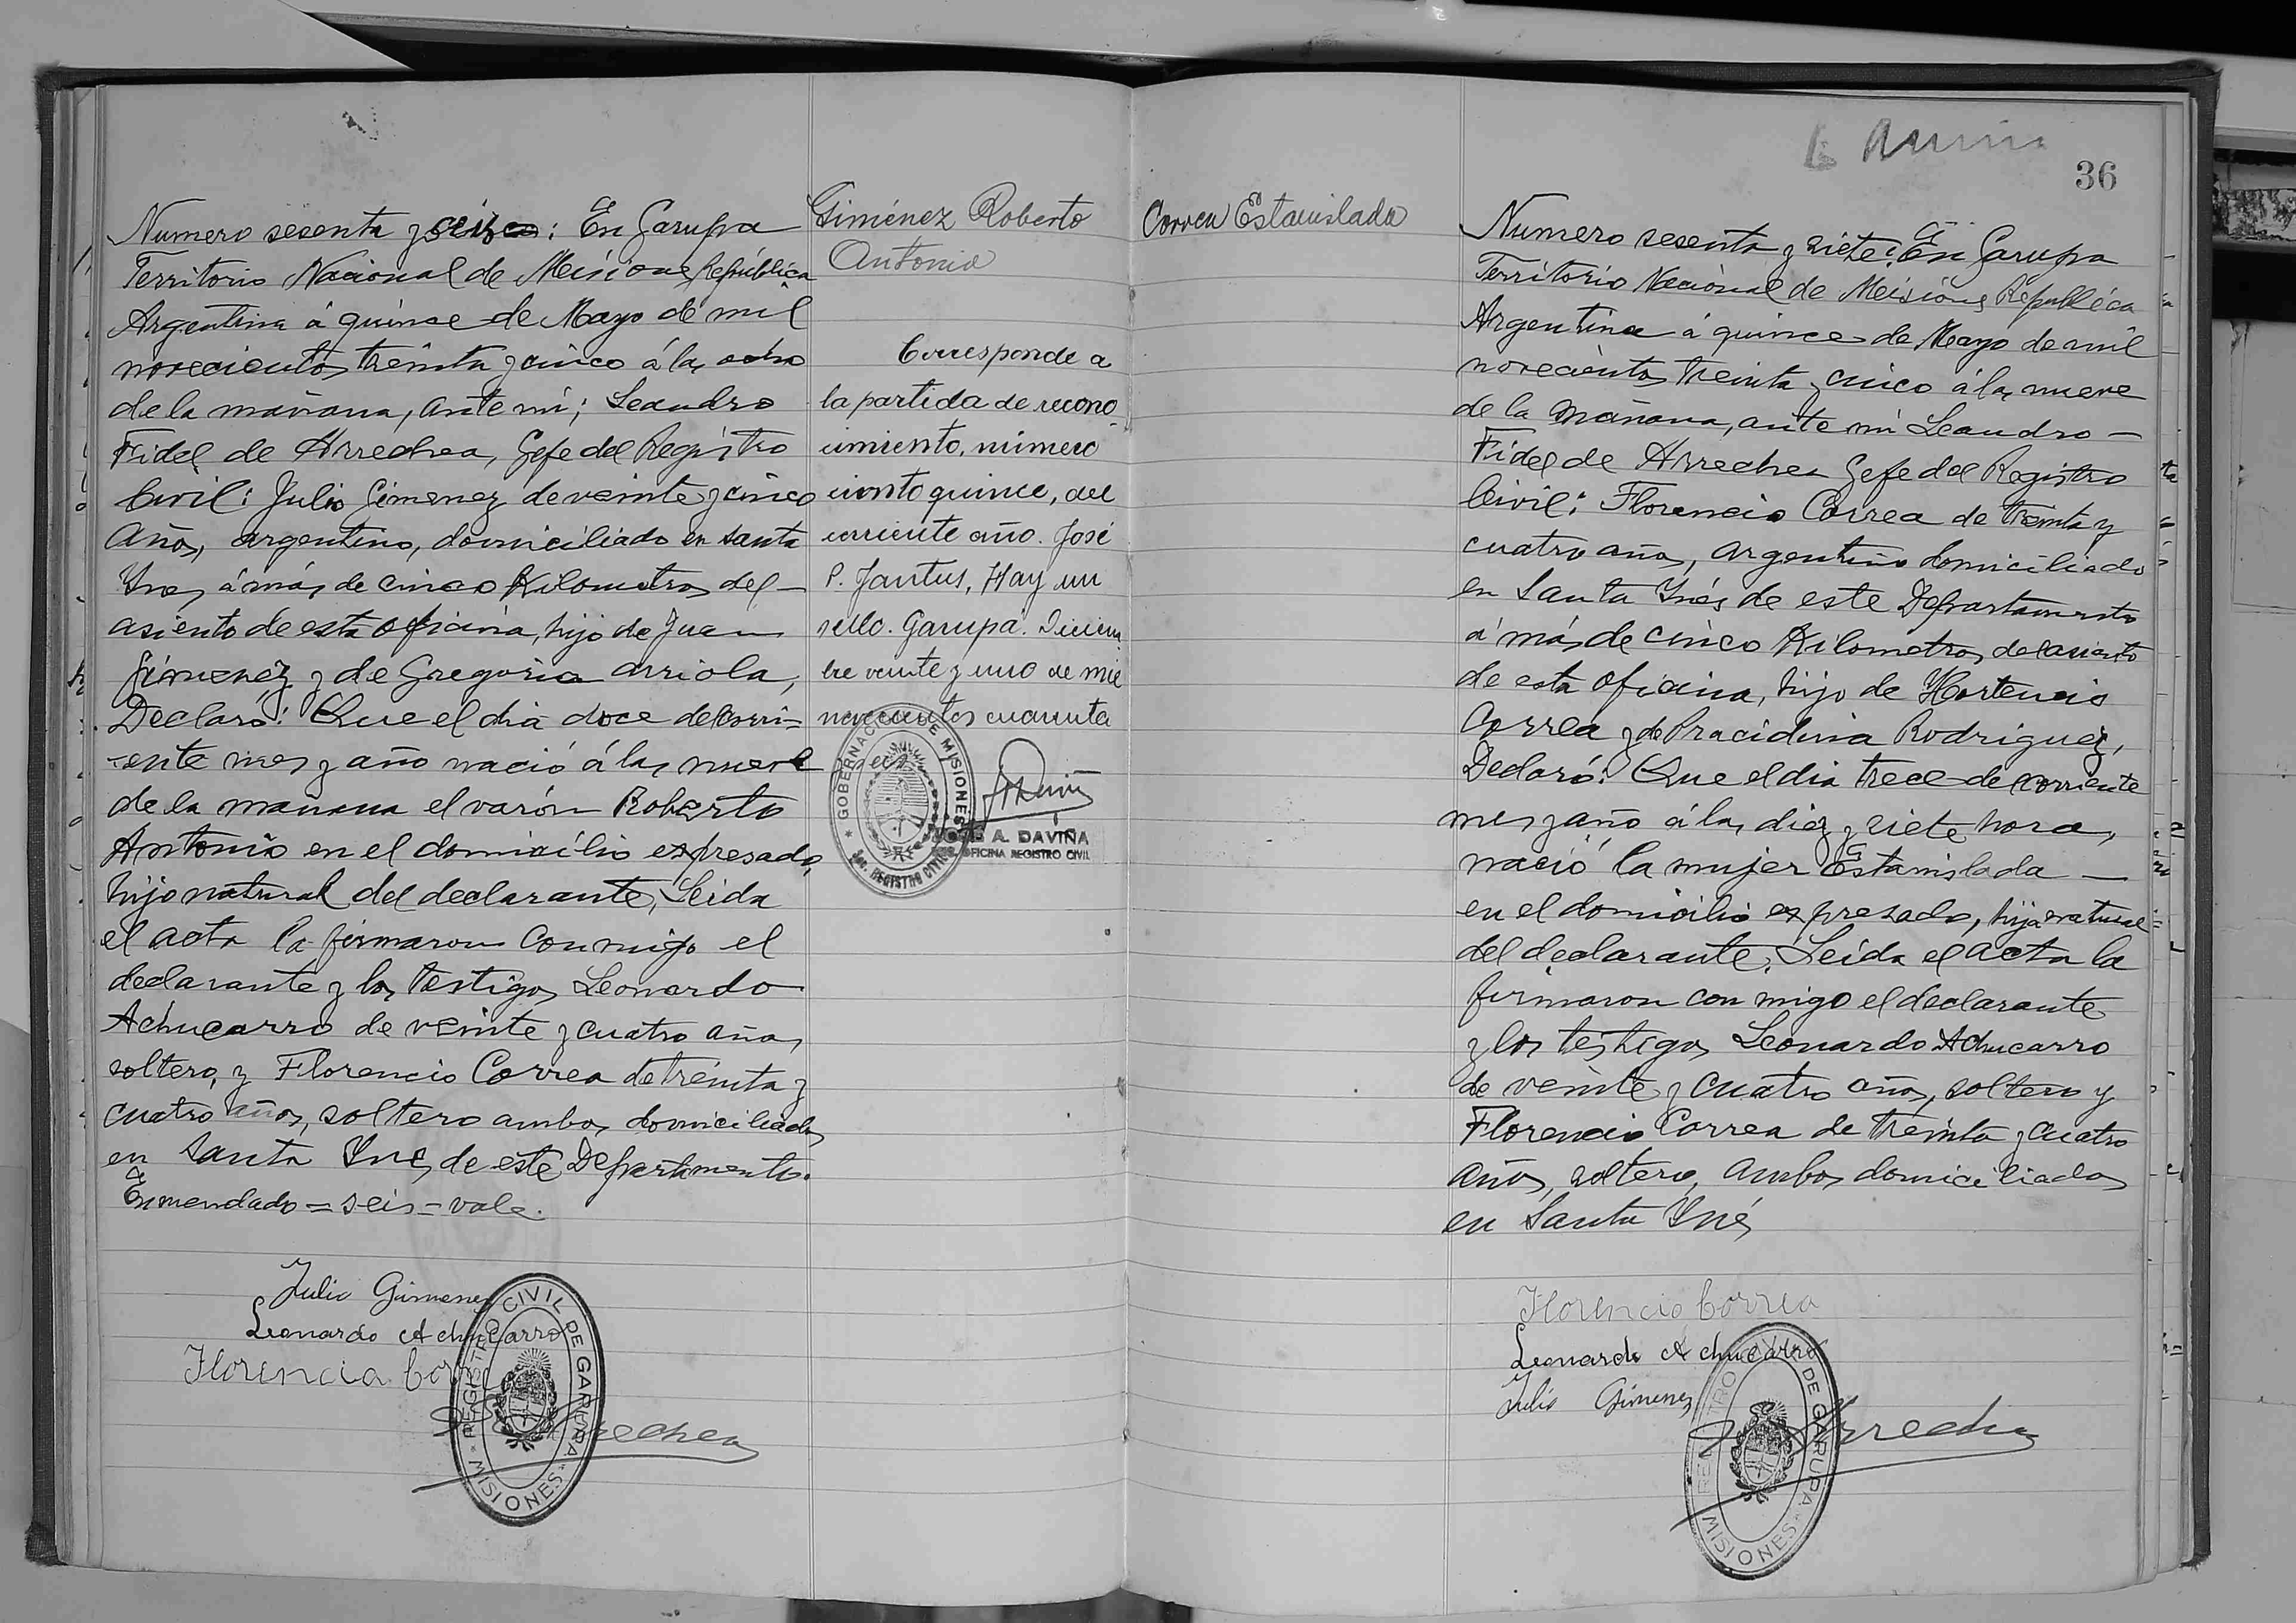 Numero sesenta y seis: En Garupa
Territorio Nacional de Misiones República
Argentina á quince de Mayo de mil
novecientos treinta y cinco á las ocho
de la mañana, ante mi; Leandro
Fidel de Arrechea, Gefe del Registro
Civil: Julio Gimenez de veinte y cinco
años, argentino, domiciliado en Santa
Ines á más de cinco Kilometros del
asiento de esta oficina, hijo de Juan
Gimenez y de Gregoria Arriola,
Declaró: Que el dia doce del corri-
ente mes y año nació á las nueve
de la mañana el varón Roberto
Antonio en el domicilio expresado,
hijo natural del declarante, Leida
el acta la firmaron conmigo el
declarante y los testigos Leonardo
Achucarro de veinte y cuatro años,
soltero, y Florencio Correa de treinta y
cuatro años, soltero ambos domiciliados
en Santa Ines de este Departamento.
Enmendado = seis = vale.
Julio Gimenez
Leonardo Achucarro
Florencia Corr
REGISTRO CIVIL DE GARUPA
MISIONES
Giménez Roberto
Antonio
Corresponde a
la partida de recono
cimiento, número
ciento quince, del
corriente año. José
P. Jantus, Hay un
sello. Garupá. Diciem
bre veinte y uno de mil
novecientos cuarenta
GOBERNACION DE MISIONES
REGISTRO CIVIL
A. DAVIÑA
OFICINA REGISTRO CIVIL
Correa Estanislada
36
Numero sesenta y siete: En Garupa
Territorio Nacional de Misiones República
Argentina á quince de Mayo de mil
novecientos treinta y cinco á las nueve
de la mañana, ante mi Leandro
Fidel de Arrechea Gefe del Registro
Civil: Florencio Correa de treinta y
cuatro años, argentino domiciliado
en Santa Inés de este Departamento
á más de cinco Kilometros del asiento
de esta oficina, hijo de Hortencio
Correa y de Pracidina Rodriguez,
Declaró: Que el dia trece de corriente
mes y año á las diez y siete horas,
nació la mujer Estanislada
en el domicilio expresado, hija natural
del declarante, Leida el acta la
firmaron con migo el declarante
y los testigos Leonardo Achucarro
de veinte y cuatro años, soltero y
Florencio Correa de treinta y cuatro
años, soltero, ambos domiciliados
en Santa Inés
Florencio Correa
Leonardo Achucarro
Julio Gimenez
Arrechea
DE GARUPA
MISIONES